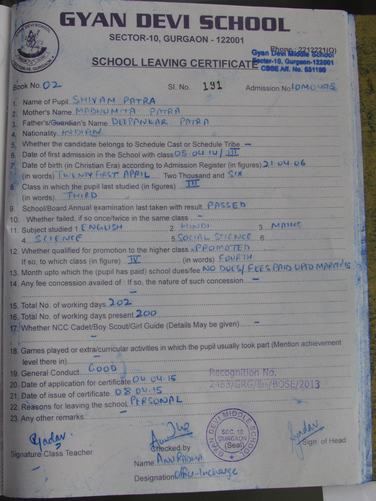 GYAN DEVI SCHOOL
SECTOR-10, GURGAON - 122001
Phone : 2212221(O)
Gyan Devi Middle School
Sector-10, Gurgaon-122001
CBSE Aff. No. 531180
SCHOOL LEAVING CERTIFICATE
Book No. 02 Sl. No. 191 Admission No.
1. Name of Pupil SHIVAM PATRA
2. Mother's Name MADHUMITA PATRA
3. Father's/Guardian's Name DEEPANKAR PATRA
4. Nationality INDIAN
5. Whether the candidate belongs to Schedule Cast or Schedule Tribe -
6. Date of first admission in the School with class 05.04.14/III
7. Date of birth (in Christian Era) according to Admission Register (in figures) 21.04.06
(in words) TWENTY FIRST APRIL Two Thousand and SIX
8. Class in which the pupil last studied (in figures) III
(in words) THIRD
9. School/Board Annual examination last taken with result PASSED
10. Whether failed, if so once/twice in the same class -
11. Subject studied 1 ENGLISH 2. HINDI 3. MATHS
4. SCIENCE 5 SOCIAL SCIENCE 6.
12. Whether qualified for promotion to the higher class PROMOTED
If so, to which class (in figure) IV (in words) FOURTH
13. Month upto which the (pupil has paid) school dues/fee NO DUES/FEES PAID UPTO MARCH'15
14. Any fee concession availed of : If so, the nature of such concession -
15. Total No. of working days 202
16. Total No. of working days present 200
17. Whether NCC Cadet/Boy Scout/Girl Guide (Details May be given) -
18. Games played or extra/curricular activities in which the pupil usually took part (Mention achievement
level there in) -
19. General Conduct GOOD
20. Date of application for certificate 04.04.15
21. Date of issue of certificate 08.04.15
22. Reasons for leaving the school PERSONAL
23. Any other remarks -
Recognition No.
GYAN DEVI MIDDLE SCHOOL
SEC. 10
GURGAON
(Seal)
Signature Class Teacher
Checked by
Name ANURADHA
Designation Offi.-Incharge
Sign. of Head